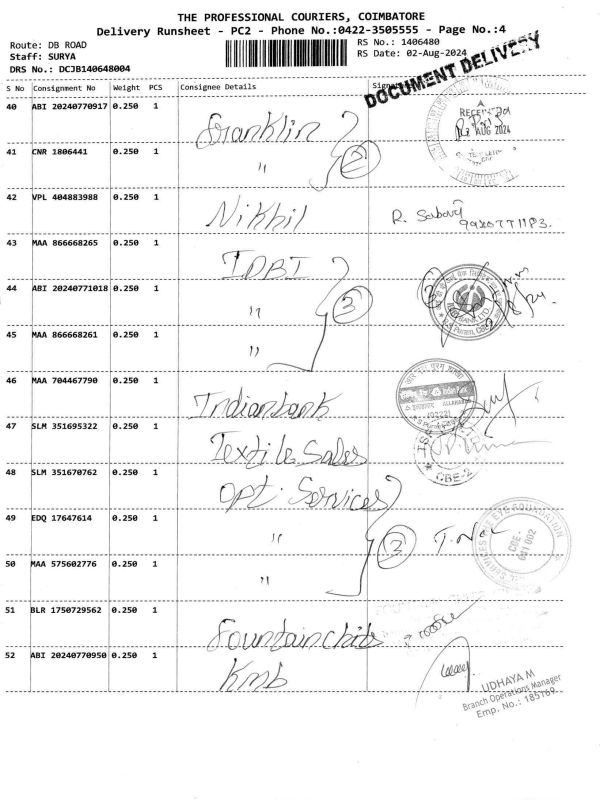 THE PROFESSIONAL COURIERS, COIMBATORE
Delivery Runsheet - PC2 - Phone No.:0422-3505555 - Page No.:4
Route: DB ROAD
Staff: SURYA
DRS No.: DCJB140648004
RS No.: 1406480
RS Date: 02-Aug-2024
DOCUMENT DELIVERY
S No Consignment No Weight PCS Consignee Details
40 ABI 20240770917 0.250 1 Franklin
AUG 2024
41 CNR 1806441 0.250 1 "
2
42 VPL 404883988 0.250 1 Nikhil R.
43 MAA 866668265 0.250 1 IDBI
44 ABI 20240771018 0.250 1 "
3
3
45 MAA 866668261 0.250 1 "
46 MAA 704467790 0.250 1 Indianbank
47 SLM 351695322 0.250 1 Textile Sales
CBE-2
48 SLM 351670762 0.250 1 Opt. Services
49 EDQ 17647614 0.250 1 "
EYE FOUNDATION
CBE-
641 002
50 MAA 575602776 0.250 1 "
51 BLR 1750729562 0.250 1 Fountainchits
52 ABI 20240770950 0.250 1 Kmb
UDHAYA M
Branch Operations Manager
Emp. No.: 185769